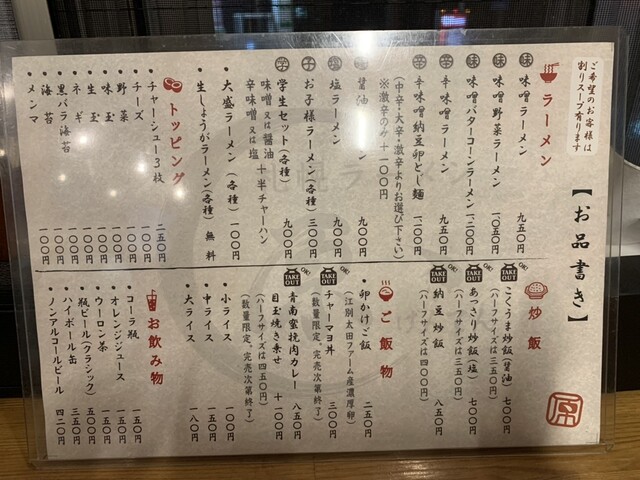 ご希望のお客様は
割りスープ有ります
【お品書き】
ラーメン
味 味噌ラーメン 九五〇円
味 味噌野菜ラーメン 一、〇五〇円
味 味噌バターコーンラーメン 一、二〇〇円
辛 辛味噌ラーメン 九五〇円
辛 辛味噌納豆卵とし麺 一、二〇〇円
(中辛・大辛・激辛よりお選び下さい)
※激辛のみ+一〇〇円
醤油ラーメン 九〇〇円
塩 塩ラーメン 九〇〇円
子 お子様ラーメン(各種) 三〇〇円
学 学生セット(各種) 九〇〇円
味噌又は醤油
辛味噌又は塩
+半チャーハン
・大盛ラーメン(各種) 一〇〇円
・生しょうがラーメン(各種) 無料
トッピング
・チャーシュー3枚 二五〇円
・チーズ 一〇〇円
・野菜 一五〇円
・味玉 一〇〇円
・生玉 一〇〇円
・ネギ 一〇〇円
・黒バラ海苔 一〇〇円
・海苔 一〇〇円
・メンマ 一〇〇円
炒飯
TAKE OUT OK!
こくうま炒飯(醤油) 七〇〇円
(ハーフサイズは三五〇円)
TAKE OUT OK!
あっさり炒飯(塩) 七〇〇円
(ハーフサイズは三五〇円)
TAKE OUT OK!
納豆炒飯 八五〇円
(ハーフサイズは四〇〇円)
ご飯物
・卵かけご飯 二五〇円
(江別太田ファーム産濃厚卵)
TAKE OUT OK!
チャーマヨ丼 三〇〇円
(数量限定。完売次第終了)
TAKE OUT OK!
青南蛮挽肉カレー 八五〇円
目玉焼き乗せ +一〇〇円
(ハーフサイズは四五〇円)
(数量限定。完売次第終了)
・小ライス 一〇〇円
・中ライス 一五〇円
・大ライス 一八〇円
お飲み物
・コーラ瓶 一五〇円
・オレンジジュース 一五〇円
・ウーロン茶 一五〇円
・瓶ビール(クラシック) 五〇〇円
・ハイボール缶 三五〇円
・ノンアルコールビール 四二〇円
原